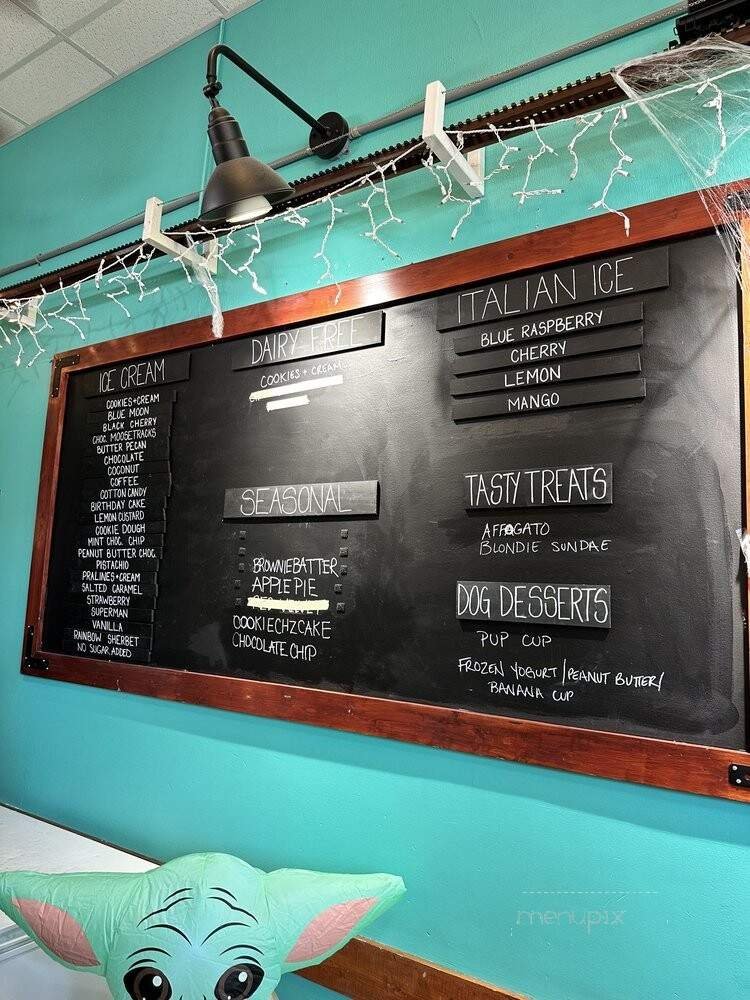 ICE CREAM
COOKIES+CREAM
BLUE MOON
BLACK CHERRY
CHOC. MOOSETRACKS
BUTTER PECAN
CHOCOLATE
COCONUT
COFFEE
COTTON CANDY
BIRTHDAY CAKE
LEMON CUSTARD
COOKIE DOUGH
MINT CHOC. CHIP
PEANUT BUTTER CHOC.
PISTACHIO
PRALINES+CREAM
SALTED CARAMEL
STRAWBERRY
SUPERMAN
VANILLA
RAINBOW SHERBET
NO SUGAR ADDED
DAIRY-FREE
COOKIES + CREAM
SEASONAL
BROWNIE BATTER
APPLE PIE
COOKIE CHZCAKE
CHOCOLATE CHIP
ITALIAN ICE
BLUE RASPBERRY
CHERRY
LEMON
MANGO
TASTY TREATS
AFFOGATO
BLONDIE SUNDAE
DOG DESSERTS
PUP CUP
FROZEN YOGURT/PEANUT BUTTER/
BANANA CUP
menupix